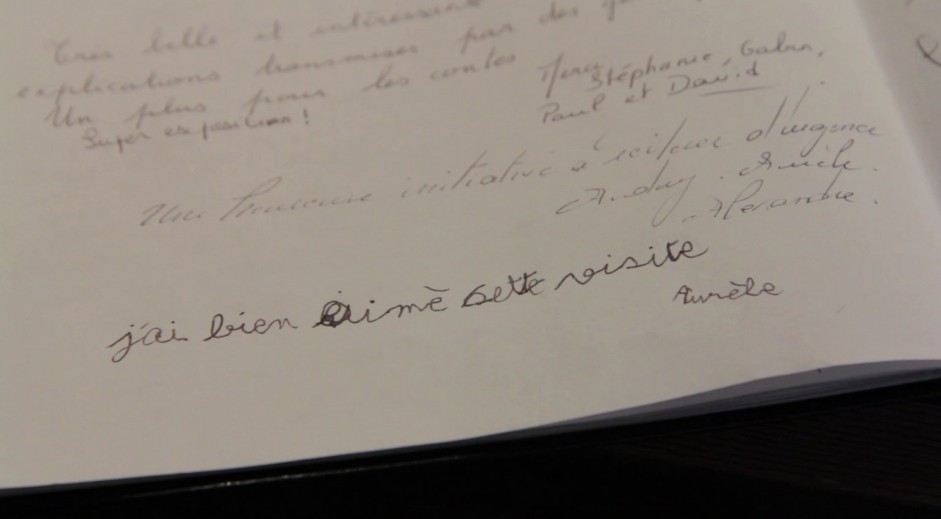 Très belle et intéressante
explications transmises par des
Un plus pour les contes
Super exposition !
Merci Stéphanie, Gabin,
Paul et David
Une heureuse initiative à d'urgence
Audrey. Aurèle.
Alexandre.
j'ai bien aimè sette visite
Aurèle